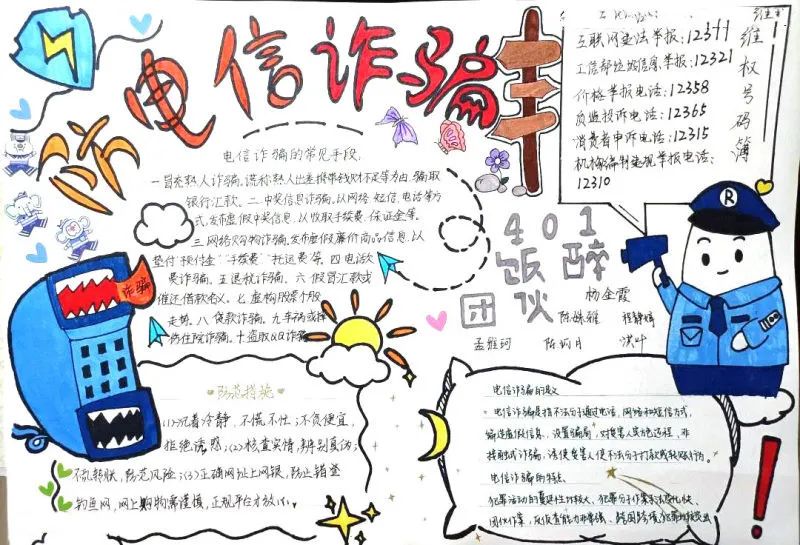 防
电信诈骗
维权号码簿
互联网违法举报:12377
工信部垃圾信息举报:12321
价格举报电话:12358
质监投诉电话:12365
消费者申诉电话:12315
机构编制违规举报电话:
12310
R
电信诈骗的常见手段.
一冒充熟人诈骗,谎称熟人出差携带钱财不足等为由,骗取
银行汇款. 二.中奖信息诈骗,以网络 短信,电话等方
式,发布虚假中奖信息,以收取手续费、保证金等.
三.网络购物诈骗,发布虚假廉价商品信息,以
垫付"预付金"手续费"托运费等. 四电话欠
费诈骗. 五退税诈骗. 六 假冒汇款或
催还借款名义. 七虚构股票个股
走势. 八贷款诈骗. 九车祸或摔
伤住院诈骗. 十盗取QQ诈骗
诈骗
401
饭醉
团伙
杨金霞
陈姝雅
孟雅珂 陈 月 洪叶
防范措施
(1)沉着冷静,不慌不忙;不贪便宜,
拒绝诱惑;(2)核查实情,辨别真伪;
不乱转账,防范风险;(3)正确网址上网银,防止错登
钓鱼网,网上购物需谨慎,正规平台才放心.
电信诈骗的定义
电信诈骗是指不法分子通过电话,网络和短信方式,
编造虚假信息,设置骗局,对受害人实施远程、非
接触式诈骗,诱使受害人给不法分子打款或转账行为。
电信诈骗的特点
犯罪活动的蔓延性比较大、犯罪分子作案手法变化快、
团伙作案,反侦查能力非常强、跨国跨境犯罪比较突出